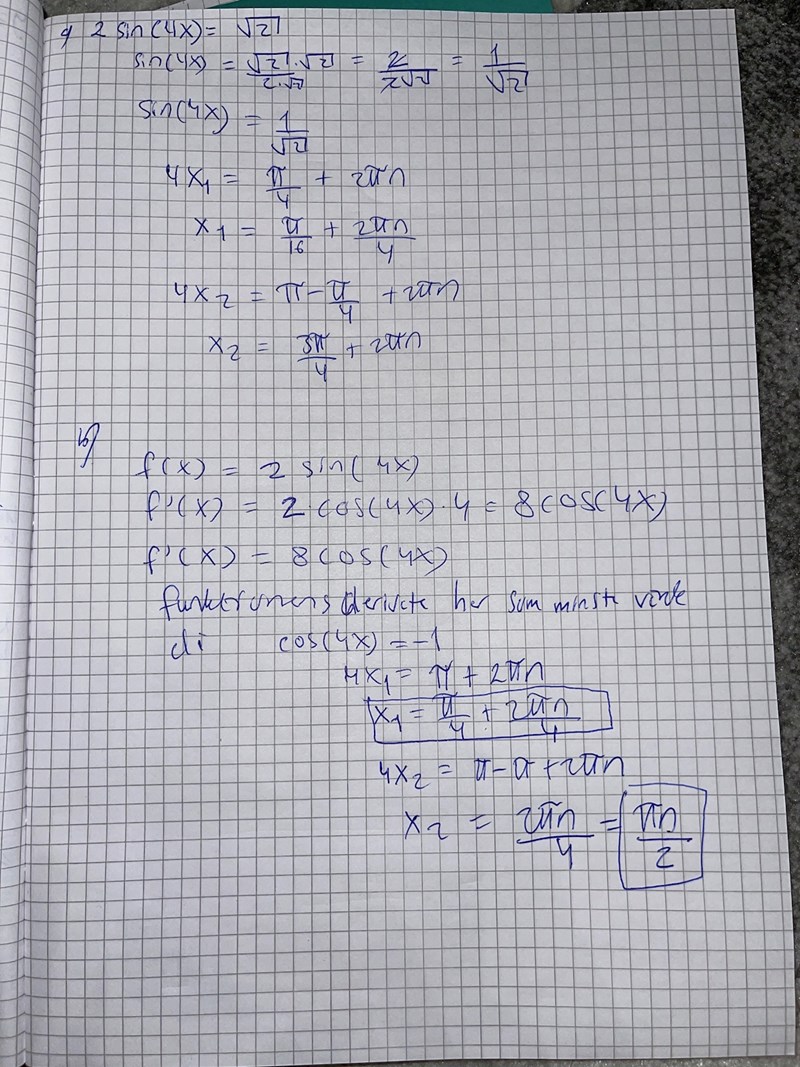 a) 2 sin(4x) = √2
sin(4x) = √2·√2/2·√2 = 2/2√2 = 1/√2
sin(4x) = 1/√2
4x₁ = π/4 + 2πn
x₁ = π/16 + 2πn/4
4x₂ = π - π/4 + 2πn
x₂ = 3π/4 + 2πn
b)
f(x) = 2 sin(4x)
f'(x) = 2·cos(4x)·4 = 8cos(4x)
f'(x) = 8cos(4x)
funktionens derivate har som minst värde
då cos(4x) = -1
4x₁ = π + 2πn
x₁ = π/4 + 2πn/4
4x₂ = π - π + 2πn
x₂ = 2πn/4 = πn/2